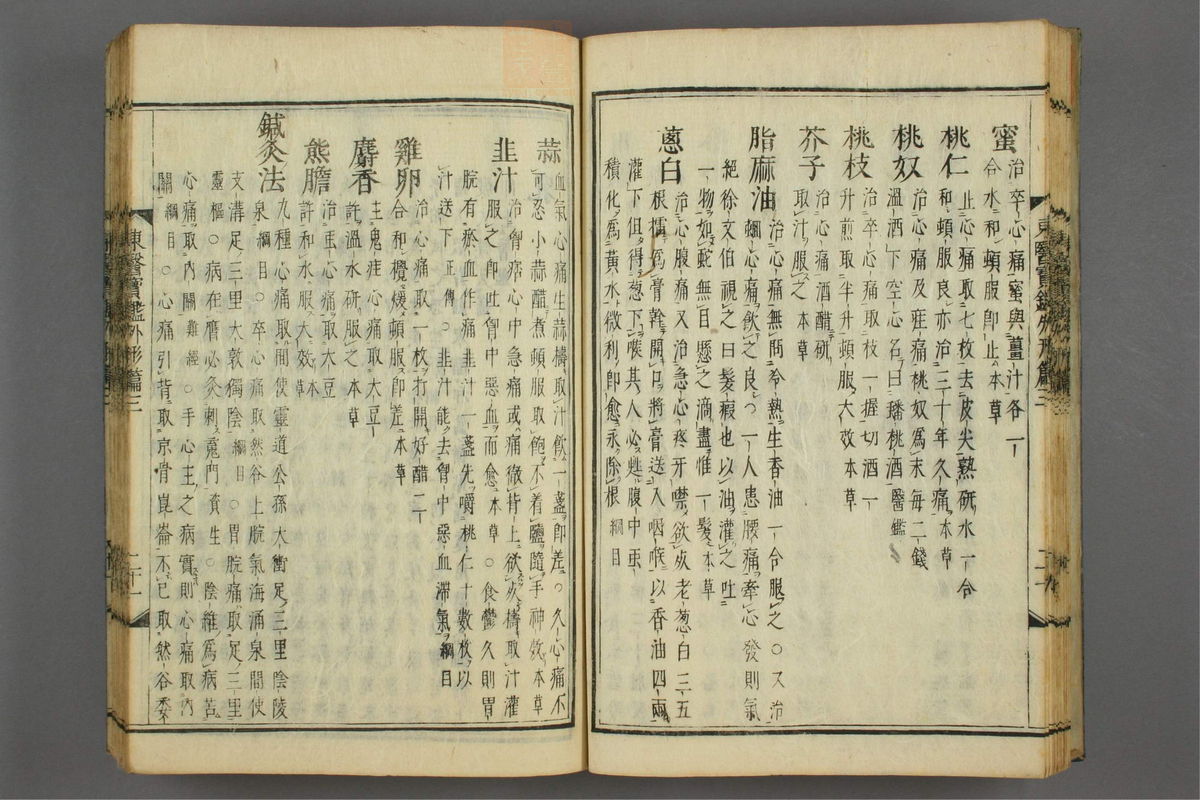 蜜
治卒心痛蜜與薑汁各一
合水和頓服卽止本草
桃仁
止心痛取七枚去皮尖熟硏水一合
和頓服良亦治三十年久痛本草
桃奴
治心痛及疰痛桃奴爲末每二錢
溫酒下空心名曰蟠桃酒醫鑑
桃枝
治卒心痛取枝一握切酒一
升煎取半升頓服大效本草
芥子
治心痛酒醋硏
取汁服之本草
脂麻油
治心痛無問冷熱生香油一合服之○又治
蛔心痛飮之良○一人患腰痛牽心發則氣
絕徐文伯視之曰髮瘕也以油灌之吐
一物如蛇無目懸之滴盡惟一髮本草
蔥白
治心腹痛又治急心疼牙噤欲死老葱白三五
根擂爲膏斡開口將膏送入咽喉以香油四兩
灌下但得葱下喉其人必甦腹中虫
積化爲黃水微利卽愈永除根綱目
東醫寶鑑外形篇三
蒜
血氣心痛生蒜擣取汁飮一盞卽差○久心痛不
可忍小蒜醋煮頓服取飽不着鹽隨手神效本草
韭汁
治胷痞心中急痛或痛徹背上欲死擣取汁灌
服之卽吐胷中惡血而愈本草○食鬱久則胃
脘有瘀血作痛韭汁一盞先嚼桃仁十數枚以
汁送下正傳○韭汁能去胷中惡血滯氣綱目
雞卵
治心痛取一枚打開好醋二
合和攪煖頓服卽差本草
麝香
主鬼疰心痛取大豆
許溫水硏服之本草
熊膽
治虫心痛取大豆
許和水服大效本草
鍼灸法
九種心痛取間使靈道公孫大衝足三里陰陵
泉綱目○卒心痛取然谷上脘氣海涌泉間使
支溝足三里大敦獨陰綱目○胃脘痛取足三里
靈樞○病在膺必灸刺魂門資生○陰維爲病苦
心痛取內關難經○手心主之病實則心痛取內
關綱目○心痛引背取京骨崑崙不已取然谷委
東醫寶鑑外形篇三